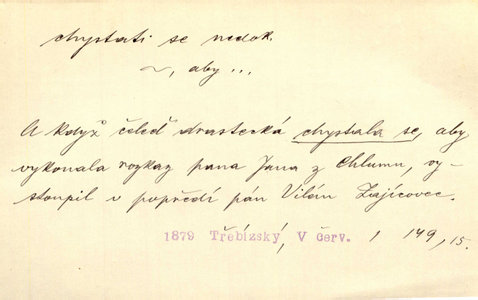 chystati se nedok.
~, aby ...
A když čeleď drastecká chystala se, aby
vykonala rozkaz pana Jana z Chlumu, vy-
stoupil v popředí pán Vilém Zajícovec.
1879 Třebízský, V červ. 1 149, 15.